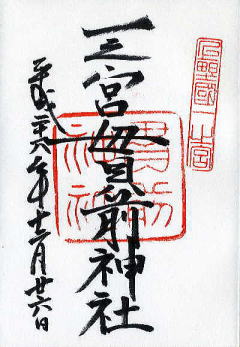 上野國一之宮
一之宮貫前神社
貫前
神社
平成年十二月廿六日